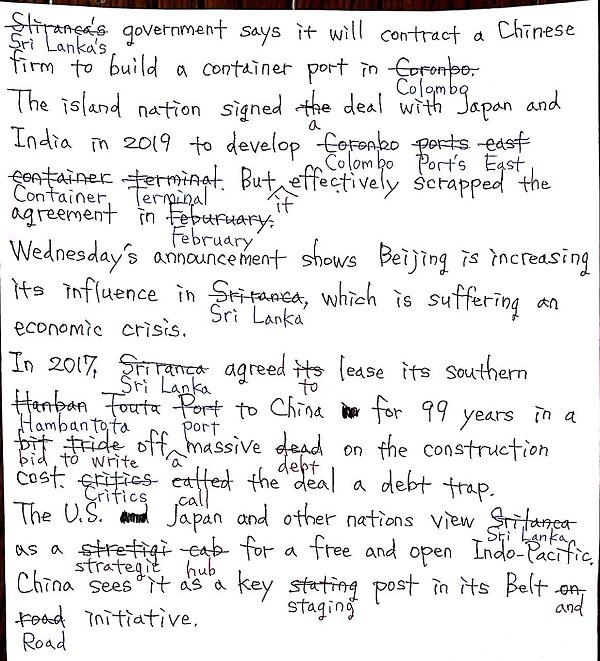 Sliranca's government says it will contract a Chinese
Sri Lanka's
firm to build a container port in Coronbo.
Colombo
The island nation signed the deal with Japan and
a
India in 2019 to develop Coronbo ports east
Colombo Port's East
container terminal. But effectively scrapped the
Container Terminal it
agreement in Feburuary.
February
Wednesday's announcement shows Beijing is increasing
its influence in Sriranca, which is suffering an
Sri Lanka
economic crisis.
In 2017, Sriranca agreed its lease its southern
Sri Lanka to
Hanban Touta Port to China for 99 years in a
Hambantota port
bit tride off massive dead on the construction
bid to write a debt
cost. critics called the deal a debt trap.
Critics call
The U.S. Japan and other nations view Srilanca
Sri Lanka
as a stretigi cab for a free and open Indo-Pacific.
strategic hub
China sees it as a key stating post in its Belt on
staging and
road initiative.
Road